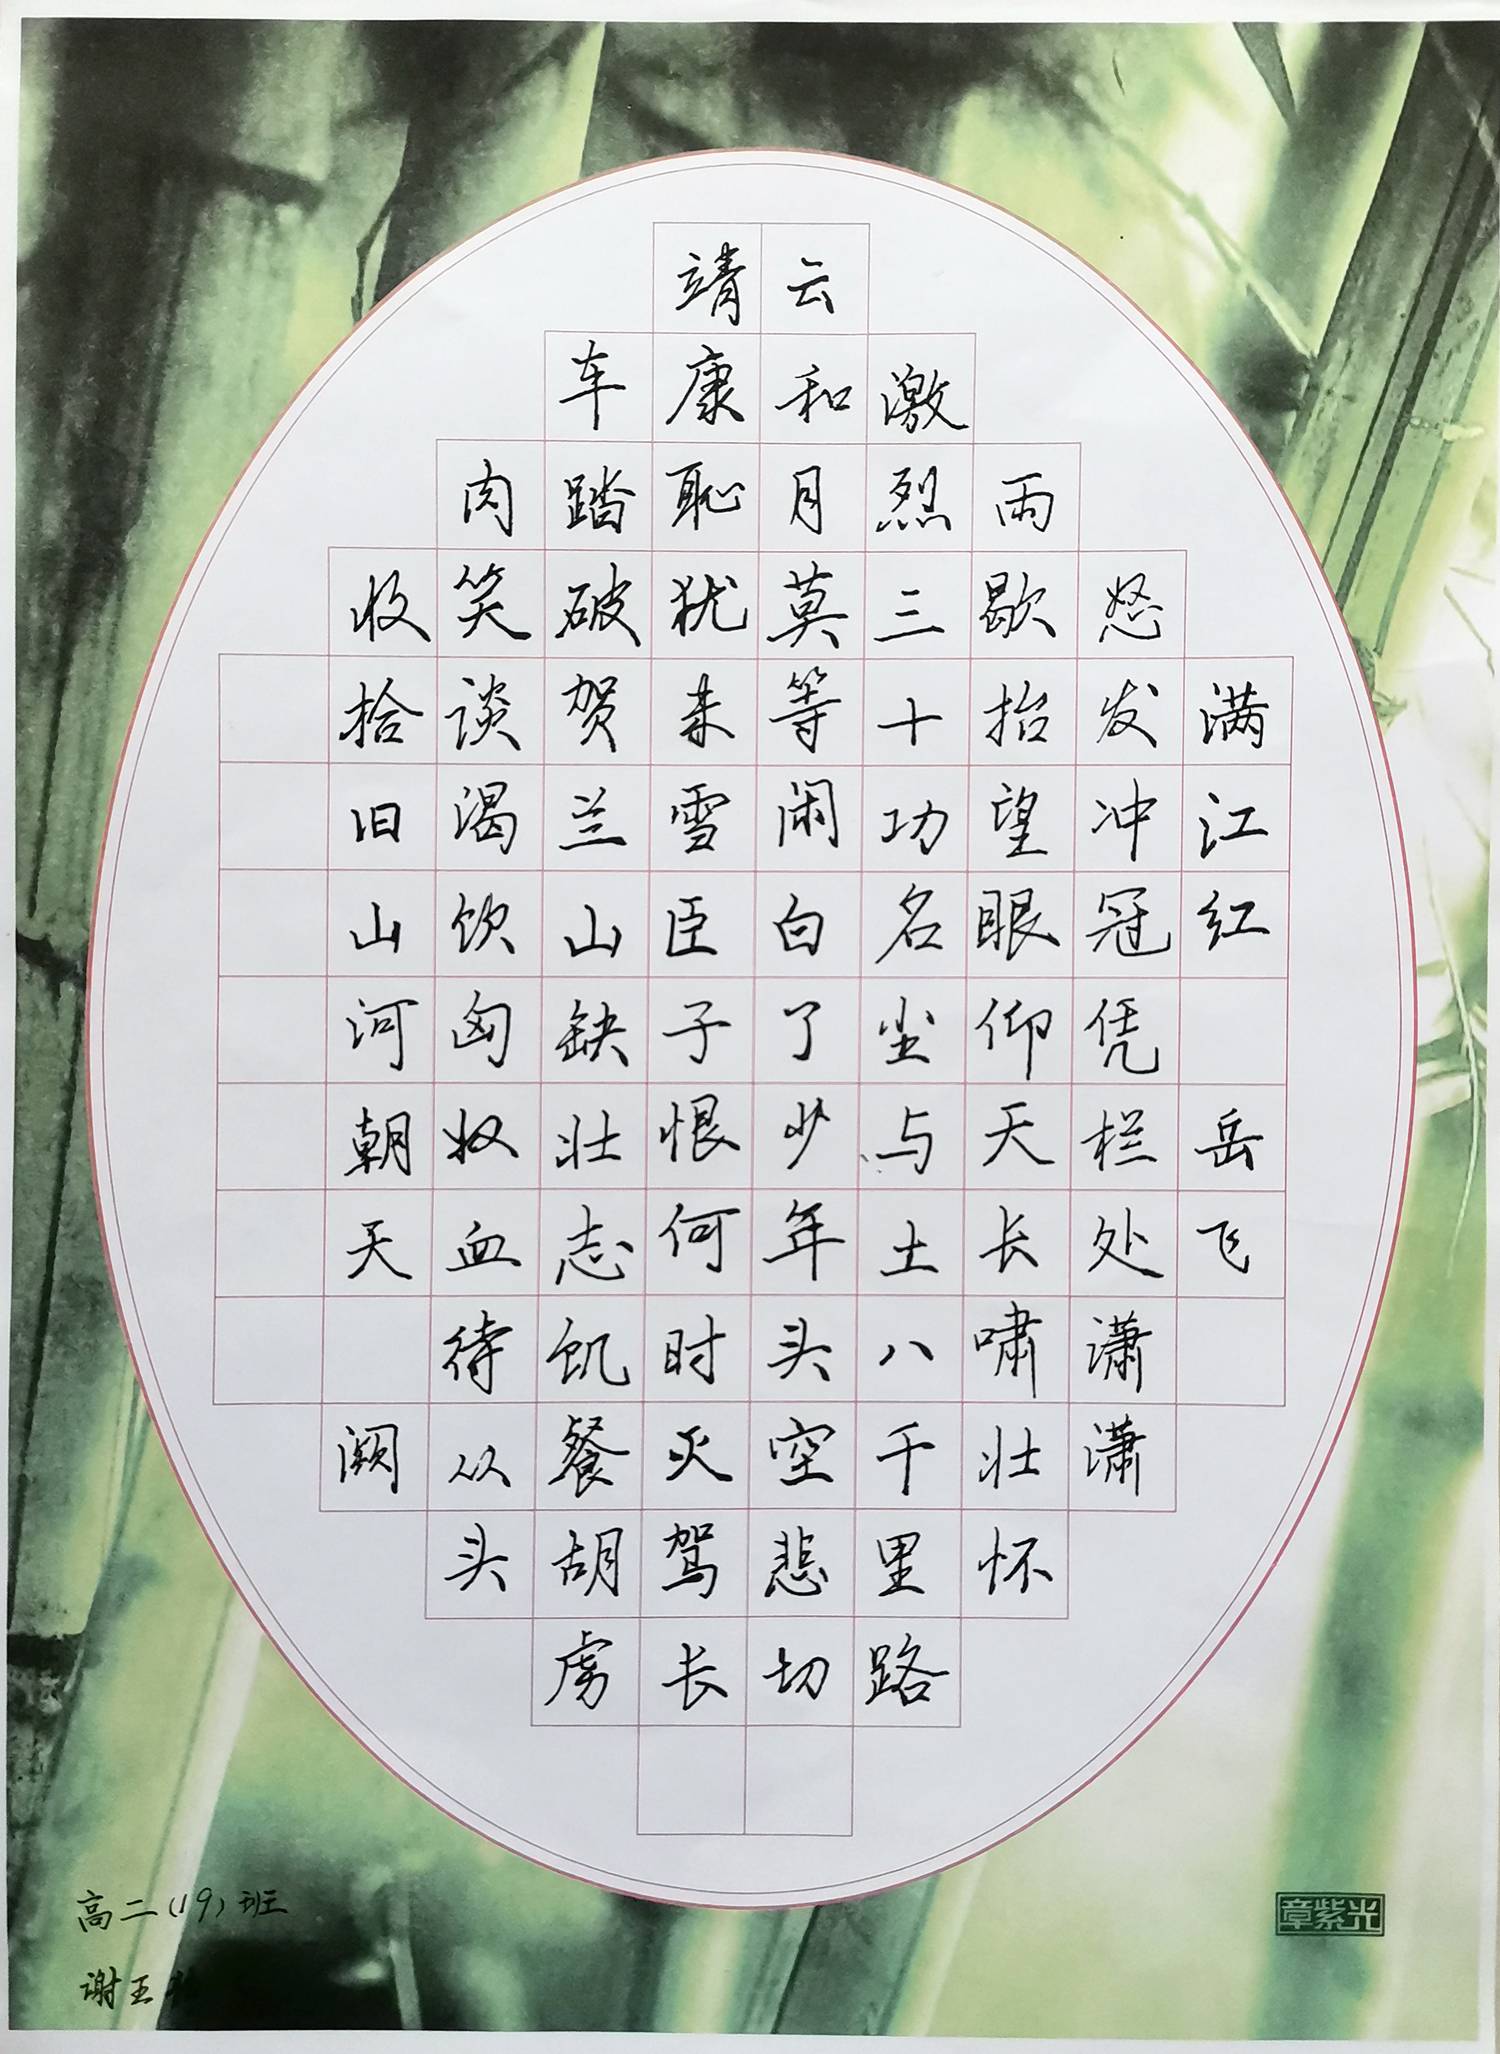 满江红 岳飞
怒发冲冠凭栏处潇潇
雨歇抬望眼仰天长啸壮怀
激烈三十功名尘与土八千里路
云和月莫等闲白了少年头空悲切
靖康恥犹未雪臣子恨何时灭驾长
车踏破贺兰山缺壮志饥餐胡虏
肉笑谈渴饮匈奴血待从头
收拾旧山河朝天阙
高二(19)班
谢王
章紫光